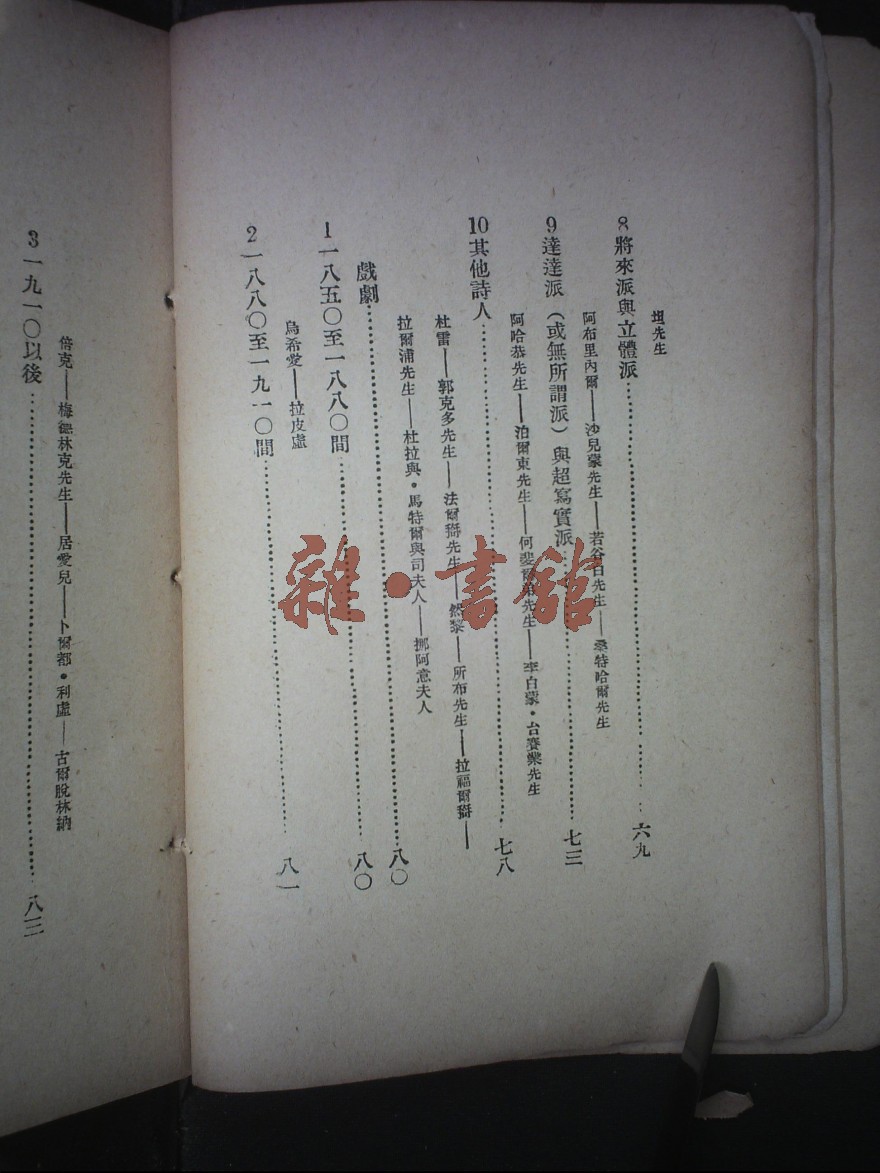 坦先生
8 將來派與立體派……六九
阿布里內爾——沙兒蒙先生——若谷白先生——桑特哈爾先生
9 達達派（或無所謂派）與超寫實派……七三
阿哈恭先生——泊爾東先生——何斐爾弟先生——李白蒙・台賽樂先生
10 其他詩人……七八
杜雷——郭克多先生——法爾搿先生——然黎——所布先生——拉福爾搿——
拉爾浦先生——杜拉與・馬特爾與司夫人——挪阿意夫人
戲劇……八〇
1 一八五〇至一八八〇間……八〇
烏希愛——拉皮虛
2 一八八〇至一九一〇間……八一
倍克——梅德林克先生——居愛兒——卜爾都・利虛——古爾脫林納
3 一九一〇以後……八三
雜・書館